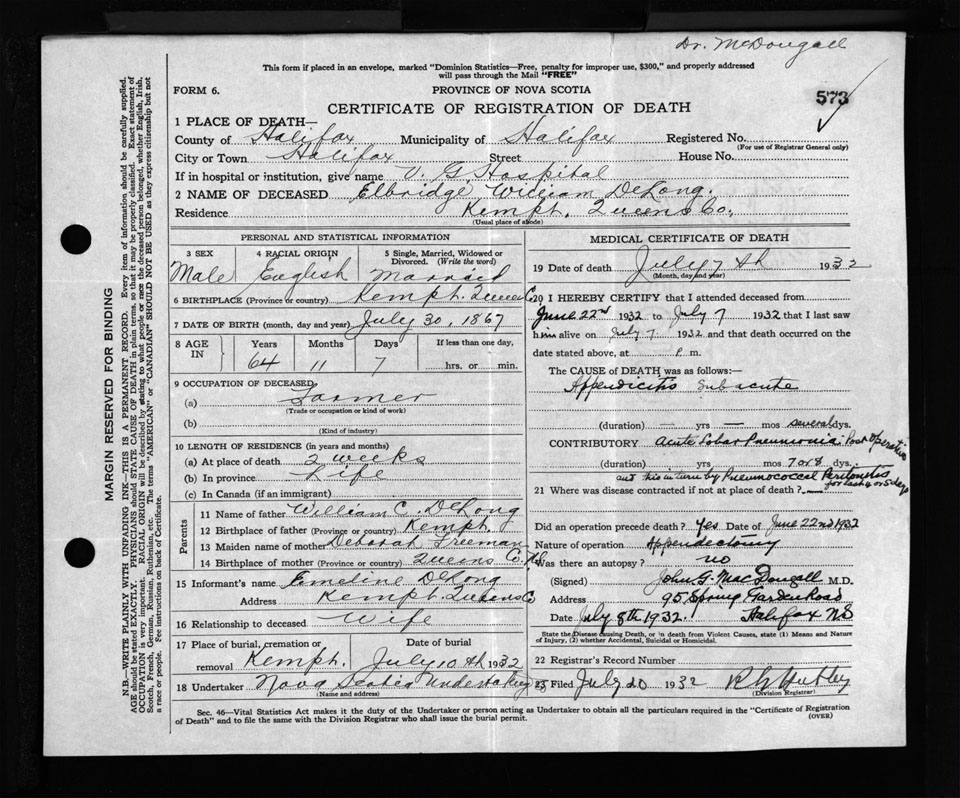 Dr. McDougall
This form if placed in an envelope, marked "Dominion Statistics—Free, penalty for improper use, $300," and properly addressed
will pass through the Mail "FREE"
FORM 6.
PROVINCE OF NOVA SCOTIA
573
CERTIFICATE OF REGISTRATION OF DEATH
1 PLACE OF DEATH—
County of Halifax Municipality of Halifax Registered No.
(For use of Registrar General only)
City or Town Halifax Street House No.
If in hospital or institution, give name V. G Hospital
2 NAME OF DECEASED Elbridge William DeLong.
Residence Kempt. Queens Co.
(Usual place of abode)
PERSONAL AND STATISTICAL INFORMATION
3 SEX 4 RACIAL ORIGIN 5 Single, Married, Widowed or
Divorced. (Write the word)
Male English Married
6 BIRTHPLACE (Province or country) Kempt. Queens Co
7 DATE OF BIRTH (month, day and year) July 30, 1867
8 AGE IN Years Months Days If less than one day,
64 11 7 hrs. or min.
9 OCCUPATION OF DECEASED
(a) Farmer
(Trade or occupation or kind of work)
(b)
(Kind of industry)
10 LENGTH OF RESIDENCE (in years and months)
(a) At place of death 2 weeks
(b) In province Life
(c) In Canada (if an immigrant)
Parents
11 Name of father William C. DeLong
12 Birthplace of father (Province or country) Kempt.
13 Maiden name of mother Deborah Freeman
14 Birthplace of mother (Province or country) Queens Co. NS
15 Informant's name Emeline DeLong
Address Kempt. Queens Co
16 Relationship to deceased Wife
17 Place of burial, cremation or removal Kempt. Date of burial July 10 th 1932
18 Undertaker Nova Scotia Undertaking Co
(Name and address)
MEDICAL CERTIFICATE OF DEATH
19 Date of death July 7 th 1932
(Month, day and year)
20 I HEREBY CERTIFY that I attended deceased from
June 22nd 1932 to July 7 1932 that I last saw
him alive on July 7 1932 and that death occurred on the
date stated above, at P. m.
The CAUSE OF DEATH was as follows:—
Appendicitis subacute
(duration) — yrs — mos several dys.
CONTRIBUTORY Acute Lobar Pneumonia: Post Operative
(duration) yrs mos 7 or 8 dys.
and this in turn by Pneumococcal Peritonitis
for last 4 or 5 days
21 Where was disease contracted if not at place of death?
Did an operation precede death? Yes Date of June 22nd 1932
Nature of operation Appendectomy
Was there an autopsy? no
(Signed) John G. MacDougall M.D.
Address 95 Spring Garden Road
Date July 8th 1932. Halifax N.S
State the Disease causing Death, or in death from Violent Causes, state (1) Means and Nature
of Injury, (2) whether Accidental, Suicidal or Homicidal.
22 Registrar's Record Number
23 Filed July 20 1932
(Division Registrar)
Sec. 46—Vital Statistics Act makes it the duty of the Undertaker or person acting as Undertaker to obtain all the particulars required in the "Certificate of Registration
of Death" and to file the same with the Division Registrar who shall issue the burial permit.
(OVER)
MARGIN RESERVED FOR BINDING
N.B.—WRITE PLAINLY WITH UNFADING INK—THIS IS A PERMANENT RECORD. Every item of information should be carefully supplied.
AGE should be stated EXACTLY. PHYSICIANS should STATE CAUSE OF DEATH in plain terms, so that it may be properly classified. Exact statement of
OCCUPATION is very important. RACIAL ORIGIN will be described by stating to what people or race the deceased person belonged, whether English, Irish,
Scotch, French, German, Russian, Ruthenian, etc. The terms "AMERICAN" or "CANADIAN" SHOULD NOT BE USED as they express citizenship but not
a race or people. See instructions on back of Certificate.